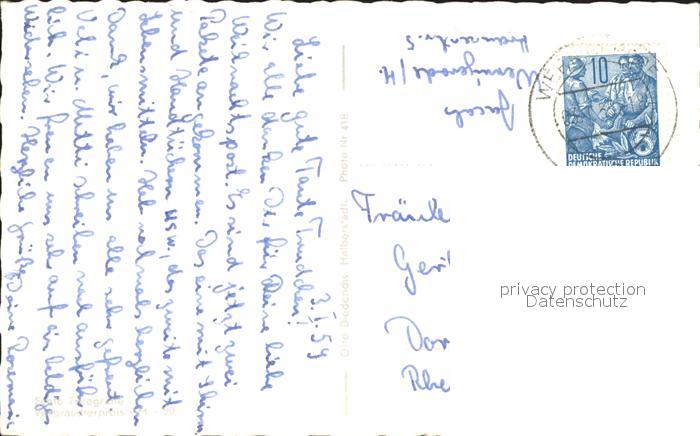 3.I.59
Liebe gute Tante Trudchen!
Wir alle danken Dir für Deine liebe
Weihnachtspost. Es sind jetzt zwei
Pakete angekommen. Das eine mit
und Handtüchern usw., das zweite mit
Lebensmitteln. Hab nochmals herzlichen
Dank, wir haben uns alle sehr gefreut.
Vati u. Mutti schreiben noch ausführ-
lich. Wir freuen uns sehr auf ein baldiges
Wiedersehen. Herzliche Grüße Deine Rosemarie
Echte Fotografie
Verbraucherpreis DM -.20
Otto Diederichs Halberstadt. Photo Nr 41B
Jacobs
Wernigerode/H.
10
5
DEUTSCHE
DEMOKRATISCHE REPUBLIK
WE
Fräule
Ger
Dor
Rhe
privacy protection
Datenschutz